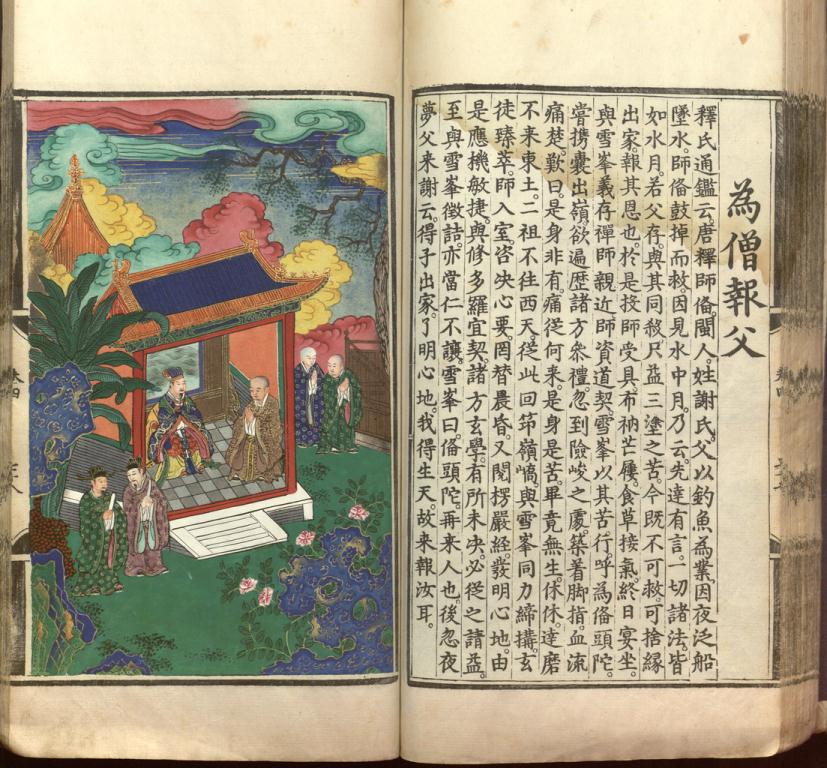 為僧報父
釋氏通鑑云。唐釋師俻。閩人。姓謝氏。父以釣魚為業。因夜泛船
墮水。師俻鼓掉而救。因見水中月。乃云。先達有言。一切諸法。皆
如水月。若父存。與其同殺。只益三塗之苦。今既不可救。可捨緣
出家。報其恩也。扵是投師受具。布衲芒屨。食草接氣。終日宴坐。
與雪峯義存禪師。親近師資道契。雪峯以其苦行。呼為俻頭陀。
嘗携囊出嶺。欲遍歷諸方叅禮。忽到險峻之處。築着脚指。血流
痛楚。歎曰。是身非有。痛從何来。是身是苦。畢竟無生。休休。達磨
不来東土。二祖不往西天。從此回笻嶺嶠。與雪峯同力締搆。玄
徒臻萃。師入室。咨决心要。罔替晨昏。又閱楞嚴經。發明心地。由
是應機敏捷。與修多羅宜契。諸方玄學。有所未决。必從之請益。
至與雪峯徵詰。亦當仁不讓。雪峯曰。俻頭陀。再来人也。後忽夜
夢父来謝云。得子出家。了明心地。我得生天。故来報汝耳。